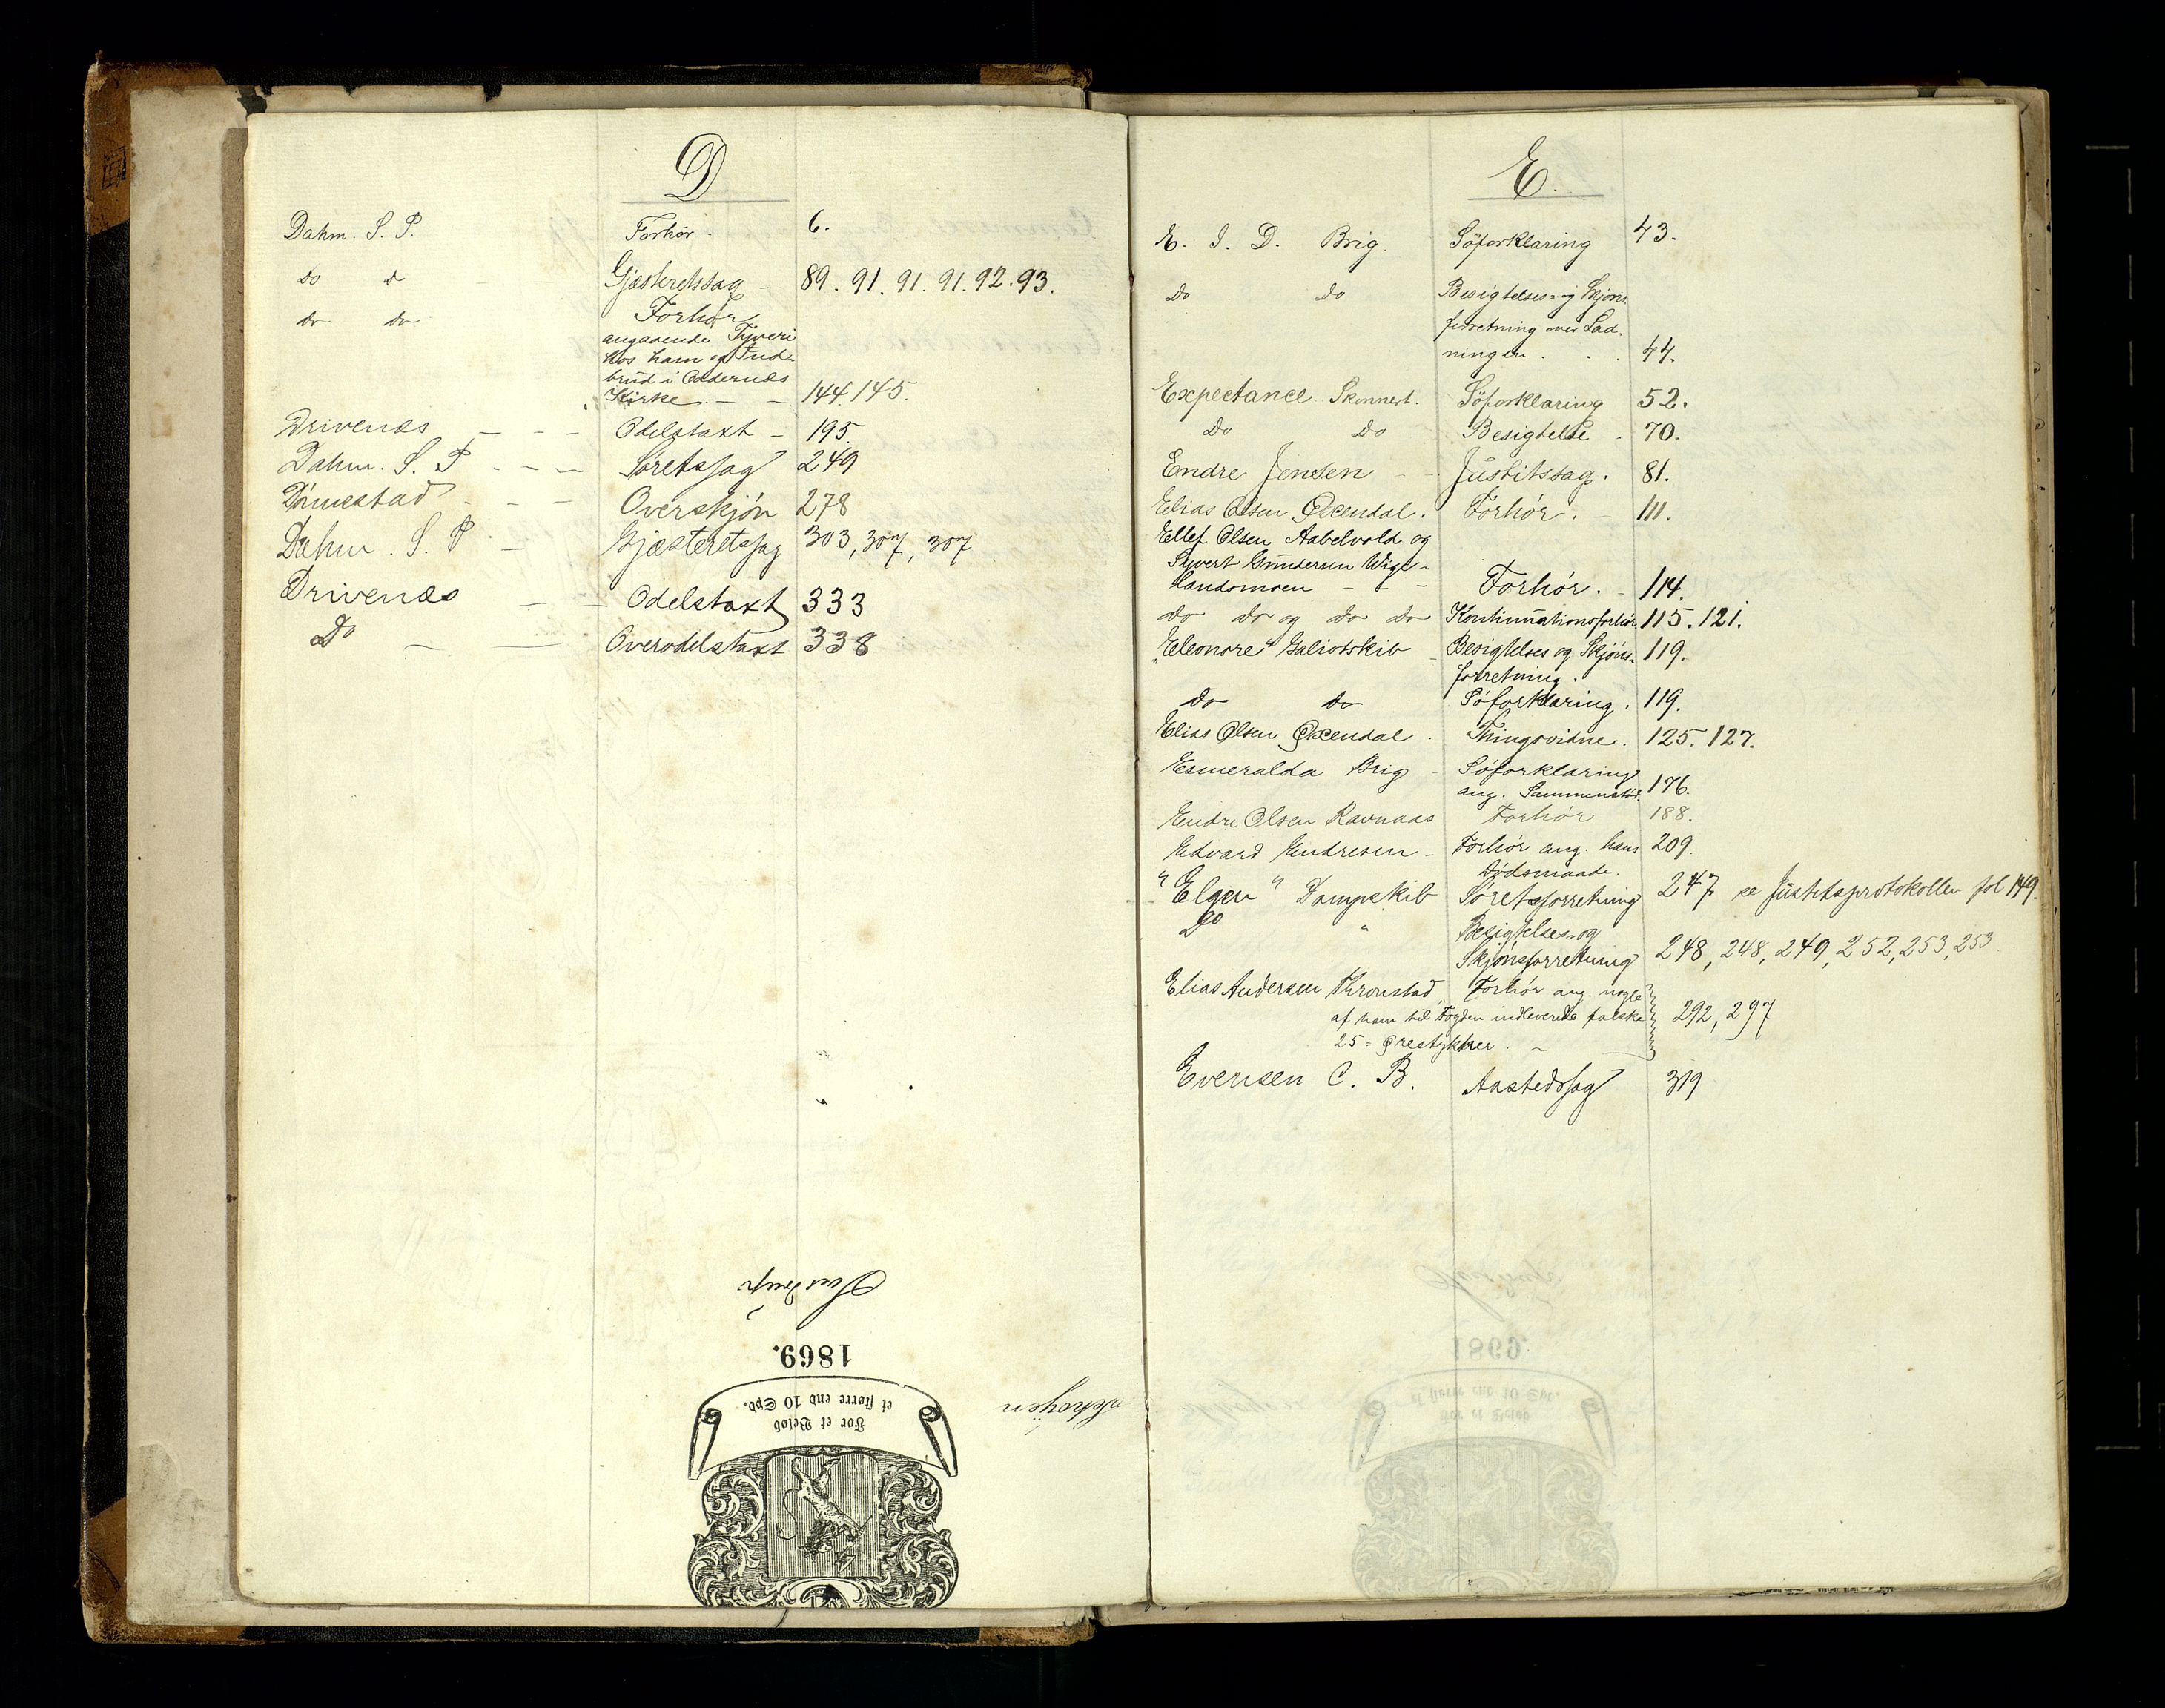 D
Dahm. S. P. Forhør. 6.
do d Gjæsteretssag - 89. 91. 91. 91. 92. 93.
do do Forhør
angaaende Tyveri
hos ham og Ind-
brud i Oddernæs
Kirke - - 144. 145.
Drivenæs - - - Odelstaxt - 195.
Dahm. S. P - - - Søretssag 249
- - Overskjøn 278
Dahm. S. P - Gjæsteretssag 303, 307, 307
Drivenæs - - Odelstaxt 333
Do - - Overodelstaxt 338
1869.
For et Beløb
et større end 10 Spd.
E.
E. I. D. Brig. Söforklaring 43.
do do Besigtelses- og Skjøns
forretning over Lad-
ningen . . 44.
Expectance Skonnert. Söforklaring 52.
do do Besigtelse . 70.
Endre Jensen - Justitssag. 81.
Elias Olsen Øxendal. Forhör. - 111.
Ellef Olsen Aabelvold og
Sivert Gundersen Wige-
landsmoen - - Forhör. - 114.
do do og do do Kontinuationsforhör. 115. 121.
"Eleonore" Galiotskib - Besigtelses og Skjøns- 119.
forretning.
do do Söforklaring. 119.
Elias Olsen Øxendal. Thingsvidne. 125. 127.
Esmeralda Brig - Söforklaring
ang. Sammenstød. 176.
Endre Olsen Ravnaas Forhör 188.
Edvard Endresen - Forhör ang. hans 209.
Dødsmaade.
"Elgen" Dampskib Søretsforretning 247 se Justitsprotokollen fol 149.
Do " Besigtelses- og
Skjönsforretning 248, 248, 249, 252, 253, 253
Elias Andersen Thronstad, Forhör ang. nogle
af ham til Fogden indleverede falske 292, 297
25-Örestykker. -
Evensen C. B. Aastedssag 319